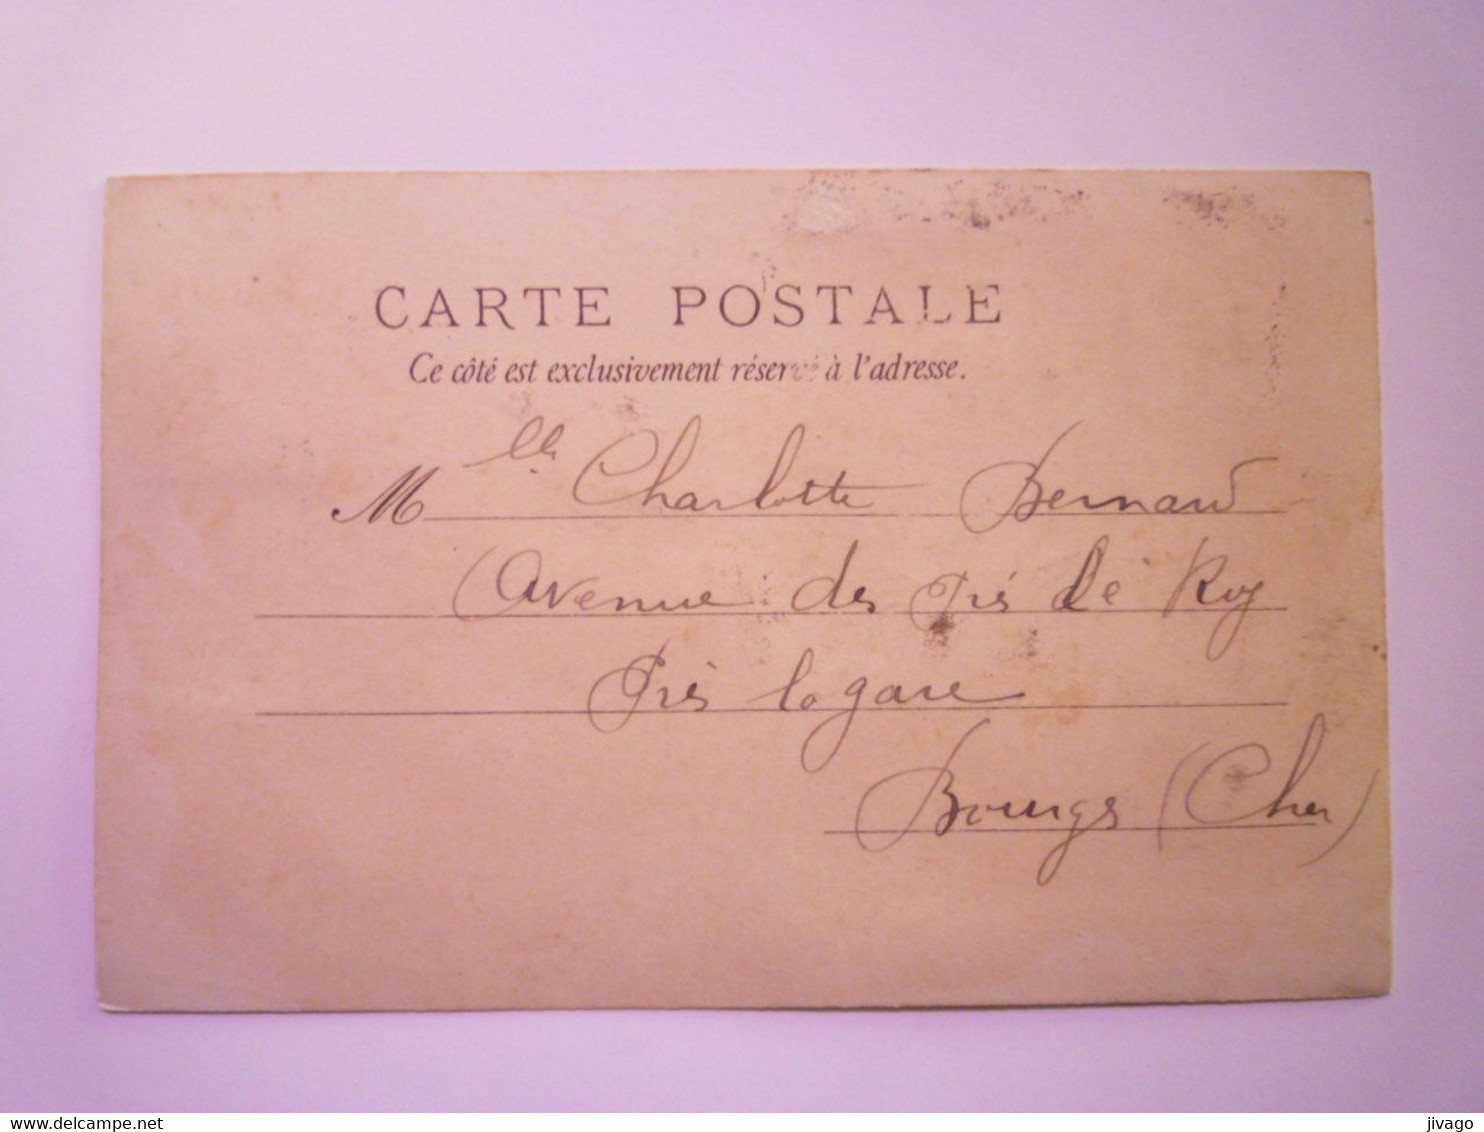 CARTE POSTALE
Ce côté est exclusivement réservé à l'adresse.
Mlle Charlotte Bernard
Avenue des Prés le Roy
Près la gare
Bourges (Cher)
www.delcampe.net
jivago